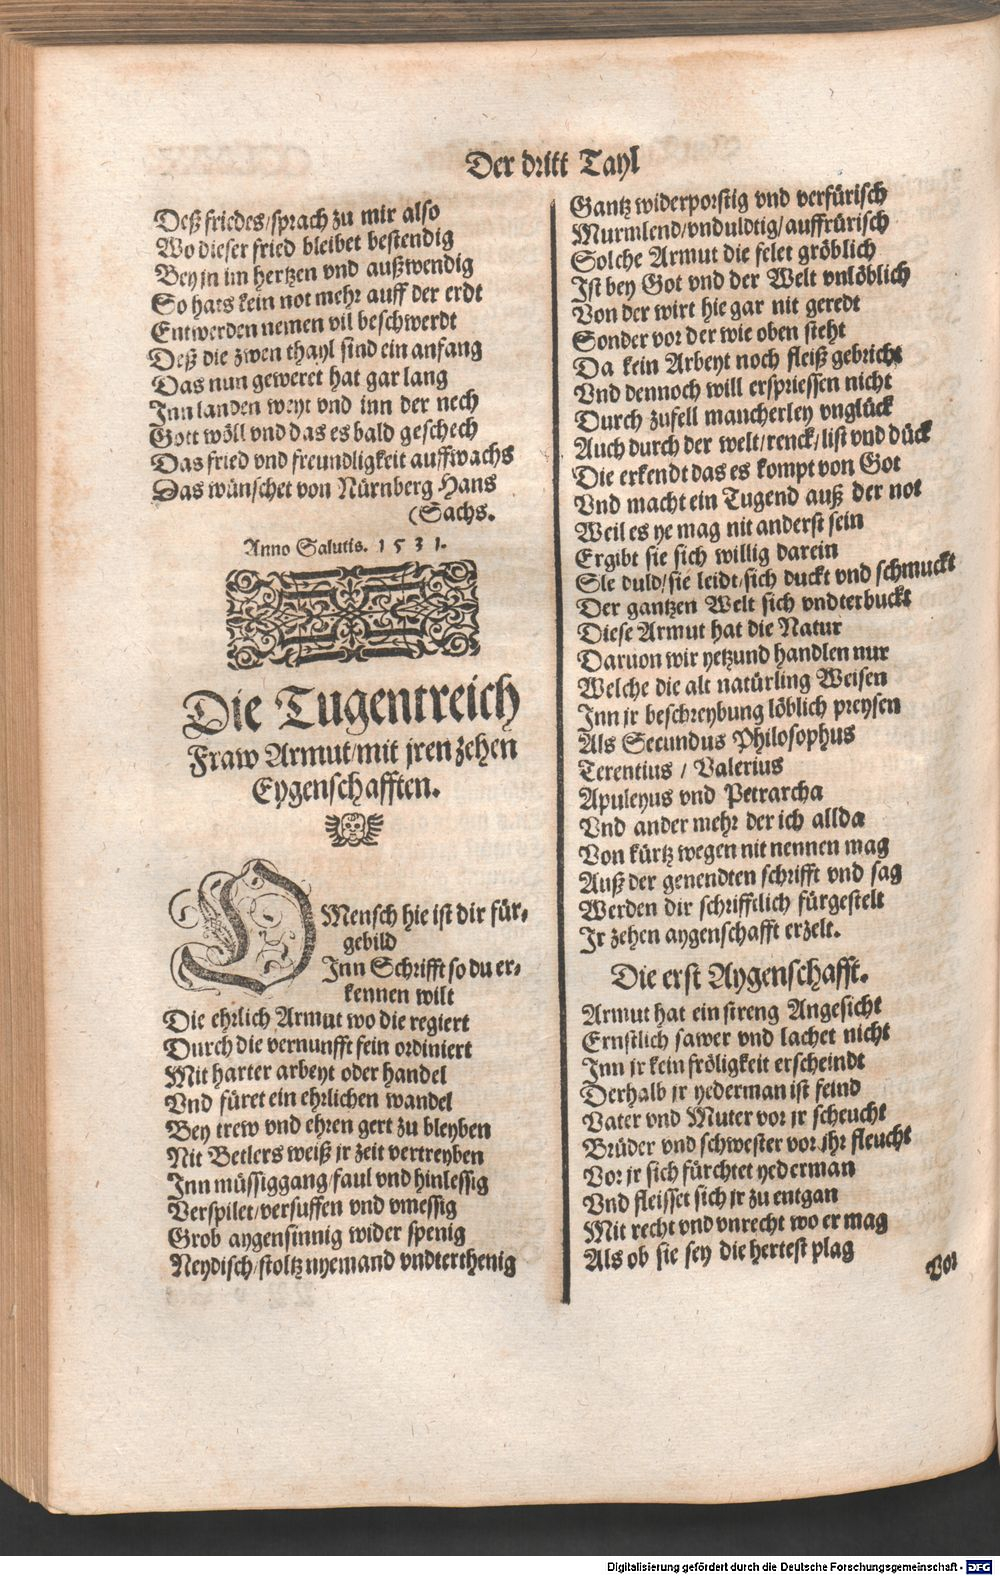 Der dritt Tayl
Deß friedes/sprach zu mir also
Wo dieser fried bleibet bestendig
Bey jn im hertzen vnd außwendig
So hats kein not mehr auff der erdt
Entwerden nemen vil beschwerdt
Deß die zwen thayl sind ein anfang
Das nun geweret hat gar lang
Inn landen weyt vnd inn der nech
Gott wöll vnd das es bald geschech
Das fried vnd freundligkeit auffwachs
Das wünschet von Nürnberg Hans
(Sachs.
Anno Salutis. 1531.
Die Tugentreich
Fraw Armut/mit jren zehen
Eygenschafften.
O Mensch hie ist dir für-
gebild
Inn Schrifft so du er-
kennen wilt
Die ehrlich Armut wo die regiert
Durch die vernunfft fein ordiniert
Mit harter arbeyt oder handel
Vnd füret ein ehrlichen wandel
Bey trew vnd ehren gert zu bleyben
Nit Betlers weiß jr zeit vertreyben
Inn müssiggang/faul vnd hinlessig
Verspilet/versuffen vnd vmessig
Grob aygensinnig wider spenig
Neydisch/stoltz nyemand vndterthenig
Gantz widerporstig vnd verfürisch
Murmlend/vnduldtig/auffrürisch
Solche Armut die felet gröblich
Ist bey Got vnd der Welt vnlöblich
Von der wirt hie gar nit geredt
Sonder vor der wie oben steht
Da kein Arbeyt noch fleiß gebricht
Vnd dennoch will erspriessen nicht
Durch zufell mancherley vnglück
Auch durch der welt/renck/list vnd dück
Die erkendt das es kompt von Got
Vnd macht ein Tugend auß der not
Weil es ye mag nit anderst sein
Ergibt sie sich willig darein
Sie duld/sie leidt/sich duckt vnd schmuckt
Der gantzen Welt sich vndterbuckt
Diese Armut hat die Natur
Daruon wir yetzund handlen nur
Welche die alt natürling Weisen
Inn jr beschreybung löblich preysen
Als Secundus Philosophus
Terentius / Valerius
Apuleyus vnd Petrarcha
Vnd ander mehr der ich allda
Von kürtz wegen nit nennen mag
Auß der genendten schrifft vnd sag
Werden dir schrifftlich fürgestelt
Jr zehen aygenschafft erzelt.
Die erst Aygenschafft.
Armut hat ein streng Angesicht
Ernstlich sawer vnd lachet nicht
Inn jr kein fröligkeit erscheindt
Derhalb jr yederman ist feind
Vater vnd Muter vor jr scheucht
Brüder vnd schwester vor jhr fleucht
Vor jr sich fürchtet yederman
Vnd fleisset sich jr zu entgan
Mit recht vnd vnrecht wo er mag
Als ob sie sey die hertest plag
Vor
Digitalisierung gefördert durch die Deutsche Forschungsgemeinschaft - DFG